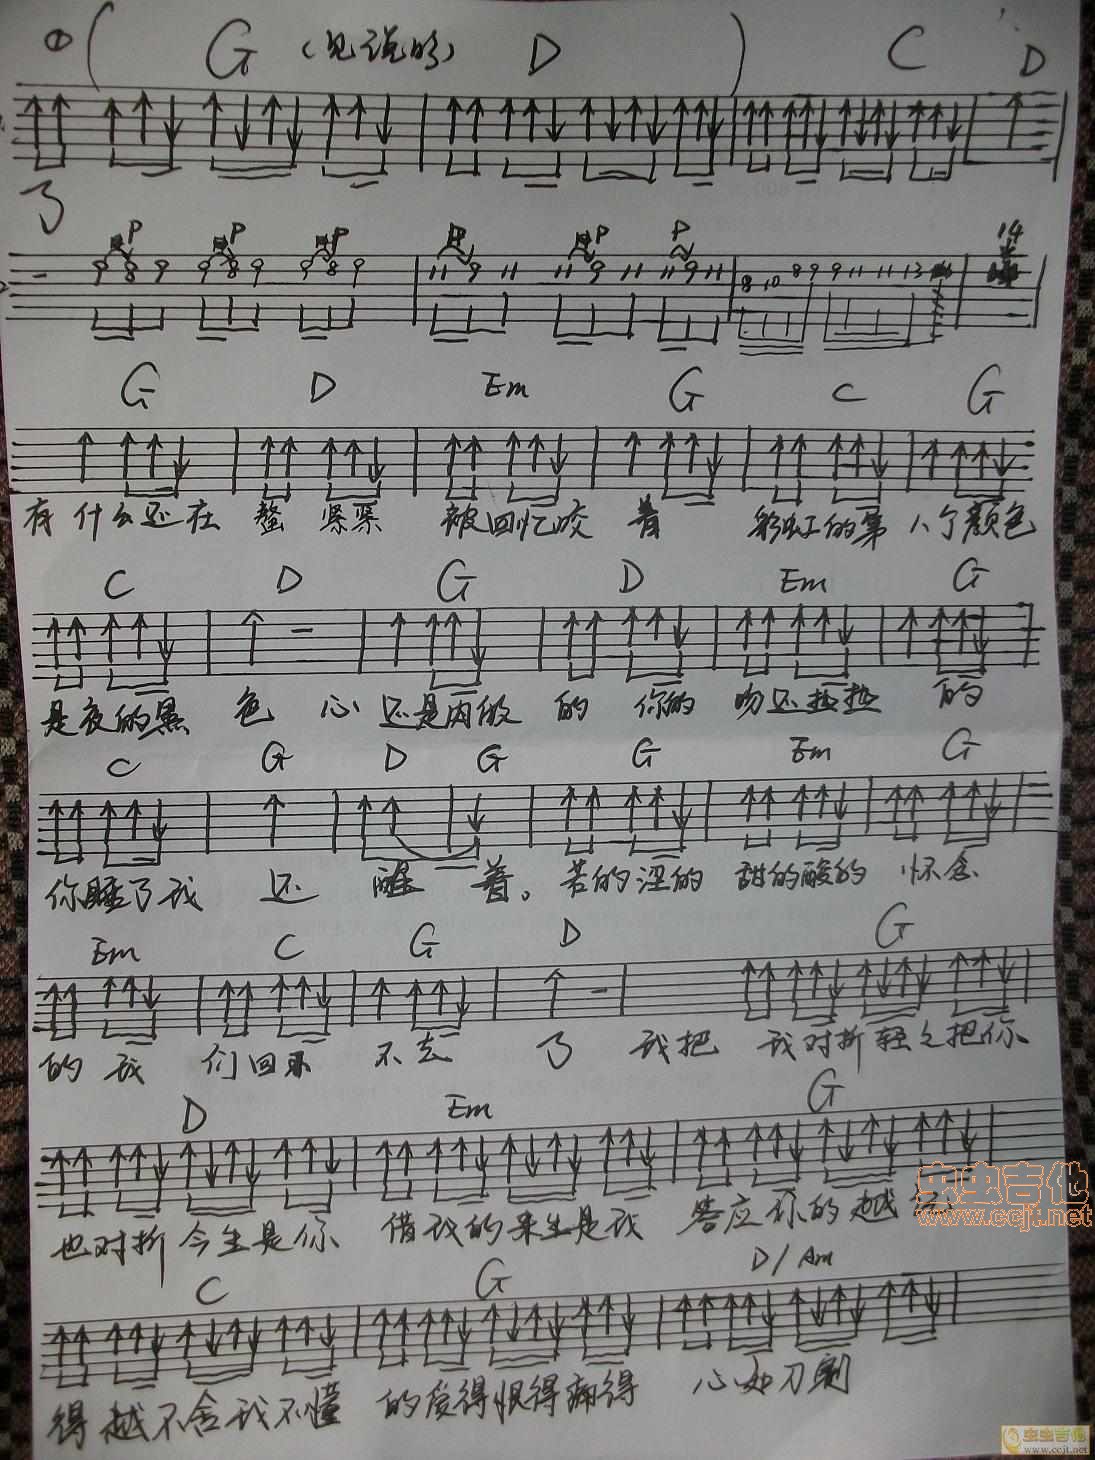 ① ( G (见说明) D ) C D
了
P P P P P P 14
9 8 9 9 8 9 9 8 9 11 9 11 11 9 11 11 9 11 8 10 8 9 9 11 11 13
G D Em G C G
有什么还在 螯 紧紧 被回忆咬 着 彩虹的第 八个颜色
C D G D Em G
是夜的黑 色 心 还是肉做 的 你的 吻还热热 的
C G D G G Em G
你睡了我 还 醒 着。 苦的涩的 甜的酸的 怀念
Em C G D G
的 我 们回不 不去 了 我把 我对折轻之把你
D Em G
也对折 今生是你 借我的来生是我 答应你的越
虫虫吉他
www.ccjt.net
C G D/Am
得越不舍我不懂 的爱得恨得痛得 心如刀割
虫虫吉他
www.ccjt.net